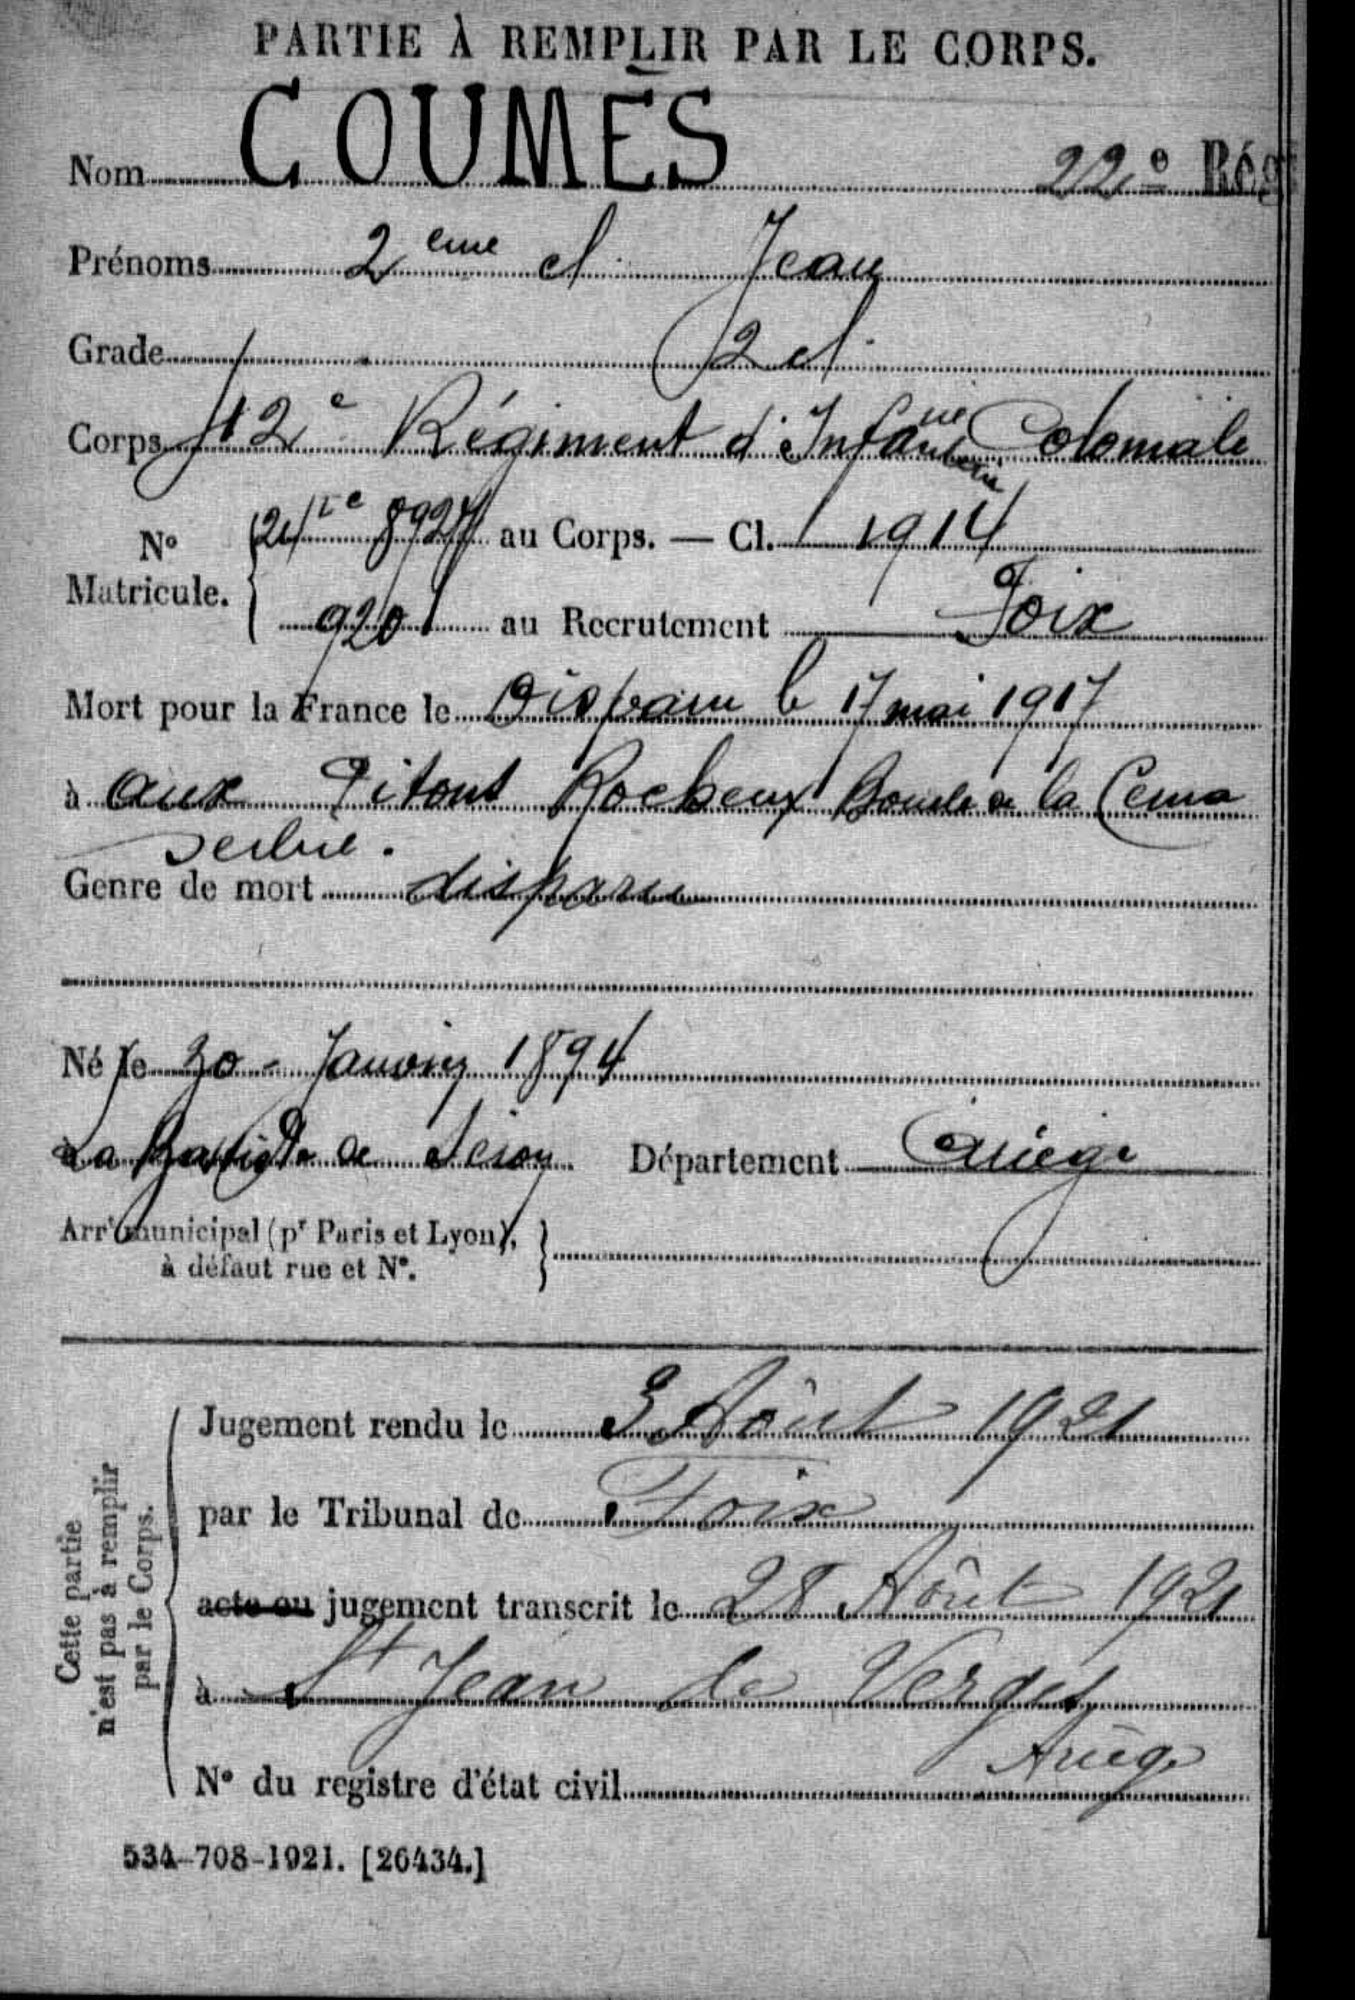 PARTIE À REMPLIR PAR LE CORPS.
Nom COUMES 22e Rég
Prénoms 2eme cl. Jean
Grade 2 cl.
Corps 42e Régiment d'Infanterie Coloniale
No Matricule. 24 8924 au Corps. — Cl. 1914
920 au Recrutement Foix
Mort pour la France le Disparu le 17 mai 1917
à aux Pitons Rocheux Boucle de la Cerna
Serbie.
Genre de mort disparu
Né le 30 - Janvier 1894
La Bastide de Sérou Département Ariège
Arrt municipal (pr Paris et Lyon),
à défaut rue et No.
Cette partie n'est pas à remplir par le Corps.
Jugement rendu le 3 Aôut 1921
par le Tribunal de Foix
acte ou jugement transcrit le 28 Aôut 1921
à St Jean de Verges
Ariège
No du registre d'état civil
534-708-1921. [26434.]